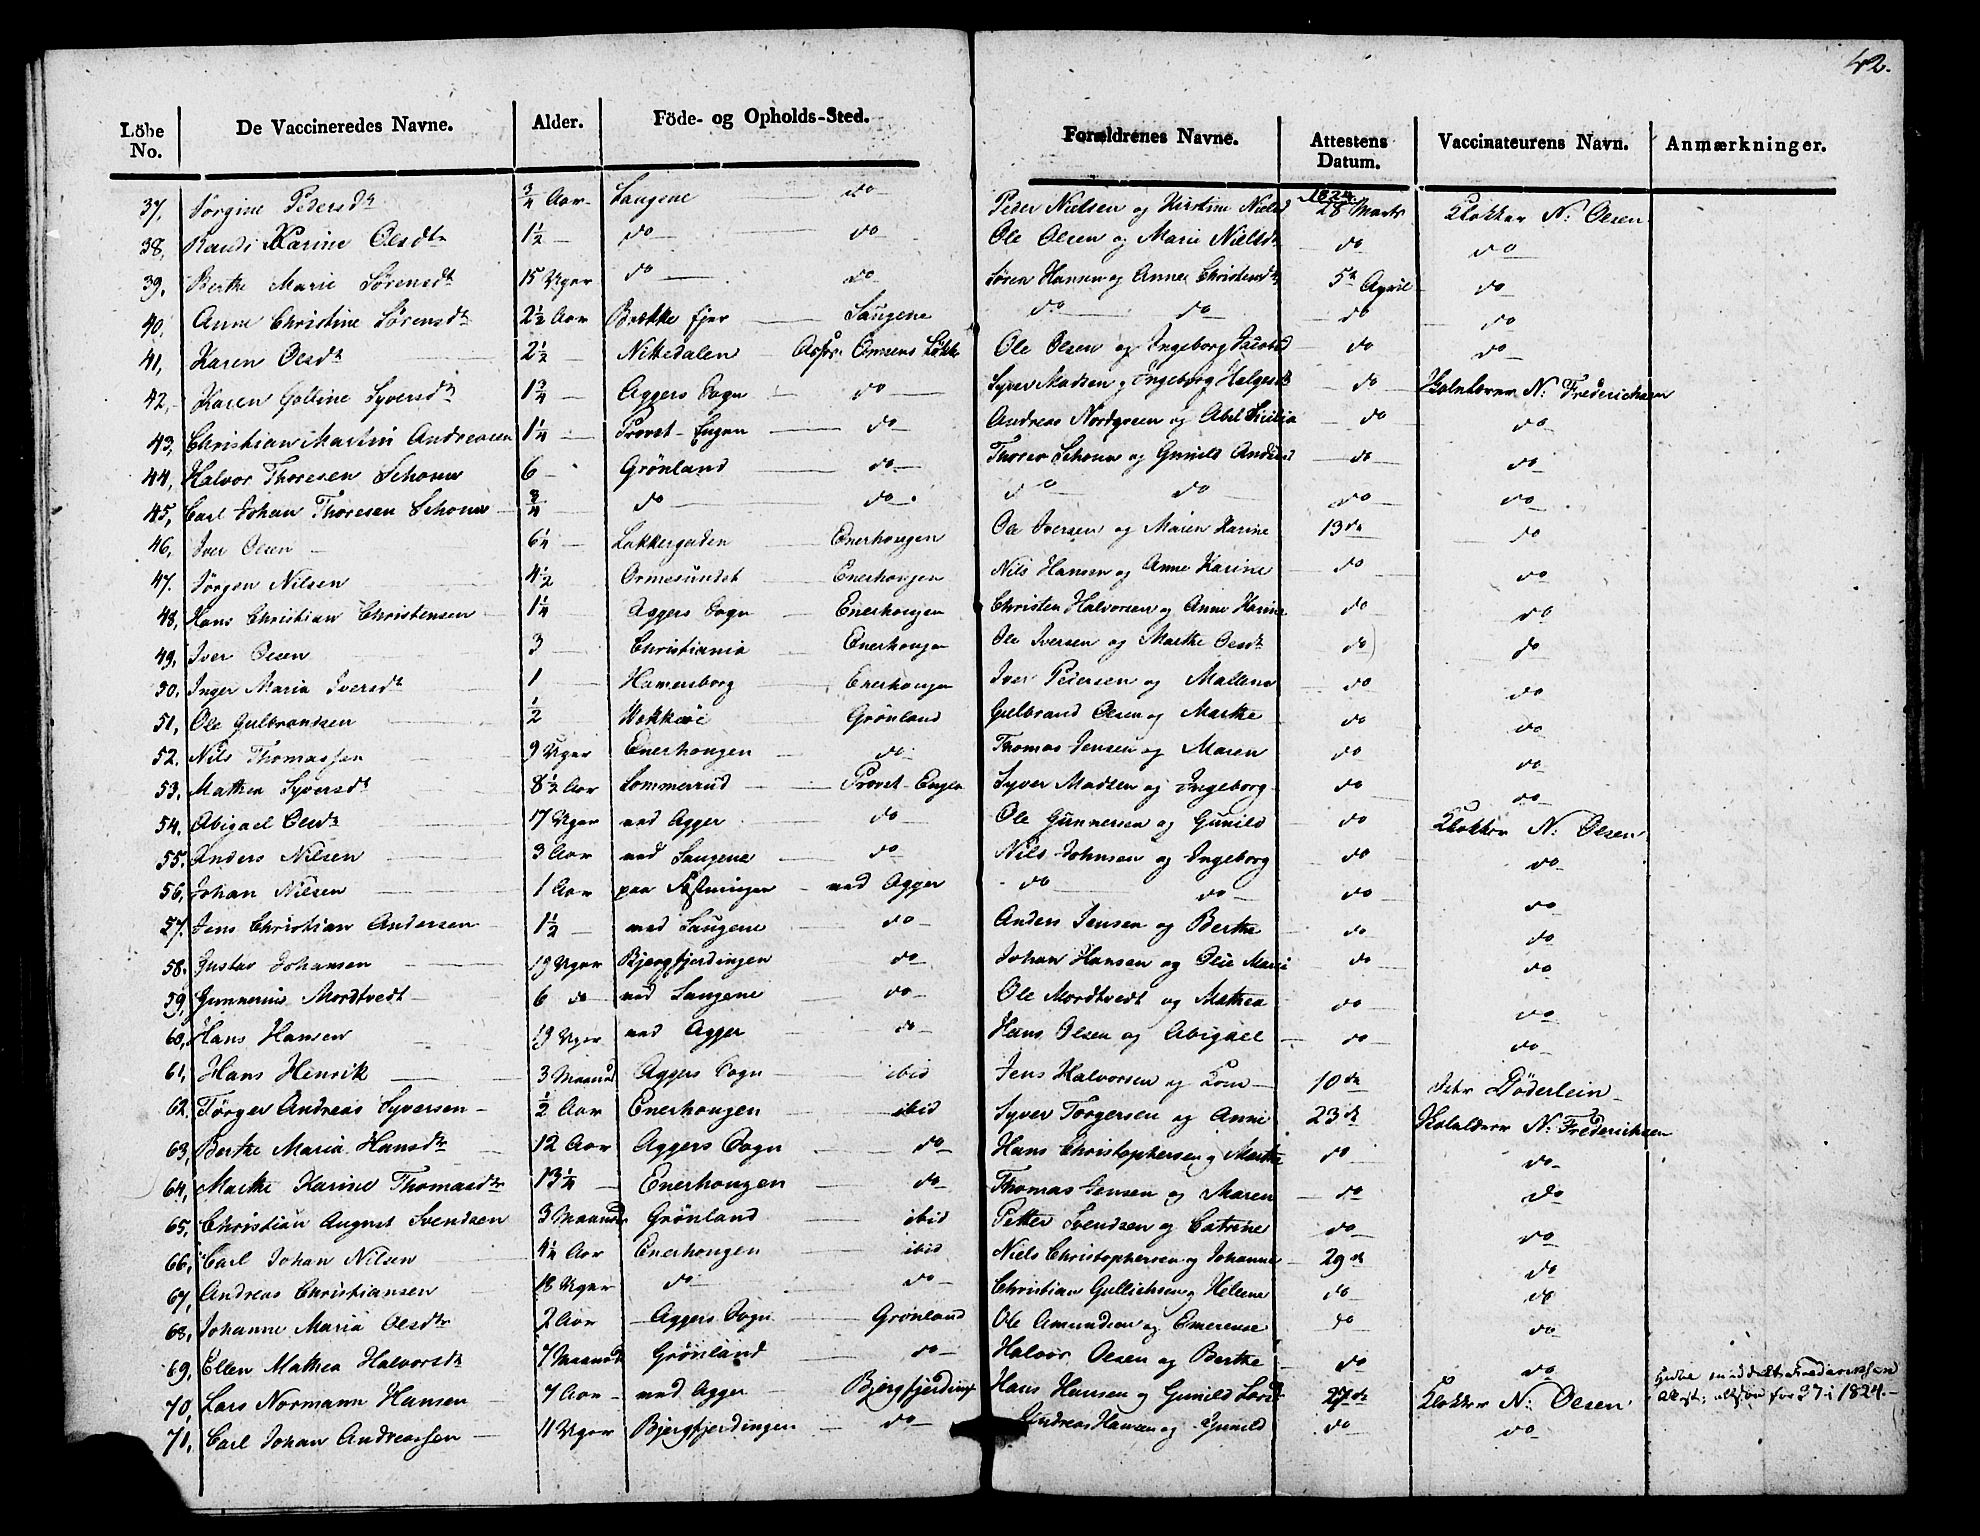 42.
Löbe No. De Vaccineredes Navne. Alder. Föde- og Opholds-Sted. Forældrenes Navne. Attestens Datum. Vaccinateurens Navn. Anmærkninger.
37, Jørgine Pedersdt 3/4 Aar Saugene do Peder Nielsen og Kirstine Nielsd 1824 28 Marts Klokker N: Olsen
38, Randi Karine Olsdtr 1½ do do Ole Olsen og Marie Nielsdt do do
39, Berthe Marie Sørensdt 15 Uger do do Søren Hansen og Anne Christensdt 5te April do
40, Anne Christine Sørensdt 2½ Aar Brække Saugene do do do do
41, Karen Olsdt 2½ Nittedalen Løkke Ole Olsen og Ingeborg Jacobsd do do
42, Karen Goline Syversdt 1¾ Aggers Sogn do Syver Madsen og Ingeborg Helgesdt do N: Frederichsen
43, Christian Martin Andreasen 1¼ Provst-Engen do Andreas Nordgreen og Abel Sicilia do do
44, Halvor Thoresen Schou 6 Grønland do Thorer Schou og Gunild Andersd do do
45, Carl Johan Thoresen Schou ¾ do do do do do do
46, Iver Olsen 6¼ Lakkergaden Enerhougen Ole Iversen og Maren Karine 13de do
47. Jørgen Nilsen 4½ Ormesundet Enerhougen Nils Hansen og Anne Karine do do
48, Hans Christian Christensen 1¼ Aggers Sogn Enerhougen Christen Halvorsen og Anne Karine do do
49, Iver Olsen 3 Christiania Enerhougen Ole Iversen og Marthe Olsdt do do
50, Inger Maria Iversdt 1 Hamersborg Enerhougen Iver Petersen og Mallene do do
51, Ole Gulbrandsen ½ Vekkerøe Grönland Gulbrand Olsen og Marthe do do
52. Nils Thomassen 9 Uger Enerhougen do Thomas Jensen og Maren do do
53, Mathea Syversdt 8½ Aar Sommerrud Provst-Engen Syver Madsen og Ingeborg do do
54, Abigael Olsdt 17 Uger ved Agger do Ole Gunnersen og Gunild do Klokker N: Olsen
55, Anders Nilsen 3 Aar ved Saugene do Nils Johnsen og Ingeborg do do
56, Johan Nilsen 1 Aar paa Fæstningen ved Agger do do do do
57. Jens Christian Andersen 1½ ved Saugene do Anders Jensen og Berthe do do
58, Gustav Johansen 19 Uger Bjergfjerdingen do Johan Hansen og Olie Marie do do
59, Gunnerius Mordtvedt 6 do ved Saugene do Ole Mordtvedt og Mathea do do
60, Hans Hansen 19 Uger ved Agger do Hans Olsen og Abigael do do
61, Hans Henrik 3 Maaned Aggers Sogn ibid Jens Halvorsen og Kone 10de Döderlein
62. Törger Andreas Syversen ½ Aar Enerhougen ibid Syver Torgersen og Anne 23de N: Frederichsen
63, Berthe Maria Hansdtr 12 Aar Aggers Sogn do Hans Christophersen og Marthe do do
64, Marthe Karine Thomasdtr 13¼ Enerhougen do Thomas Jensen og Maren do do
65, Christian August Svendsen 3 Maaneder Grønland ibid Petter Svendsen og Catrine do do
66, Carl Johan Nilsen 4¼ Aar Enerhougen ibid Niels Christophersen og Johanne 29de do
67, Andreas Christiansen 18 Uger do do Christian Gullichsen og Helene do do
68, Johanne Maria Olsdtr 2 Aar Aggers Sogn Grønland Ole Amundsen og Emerense do do
69, Ellen Mathea Halvorsdt 7 Maaned Grønland do Halvor Olsen og Berthe do do
70, Lars Normann Hansen 7 Aar ved Agger Bjergfjerding Hans Hansen og Gunild Larsd 27de Klokker N: Olsen Frederichsen for 37 i 1824.
71, Carl Johan Andreassen 11 Uger Bjergfjerdingen do Andreas Hansen og Gunild do do